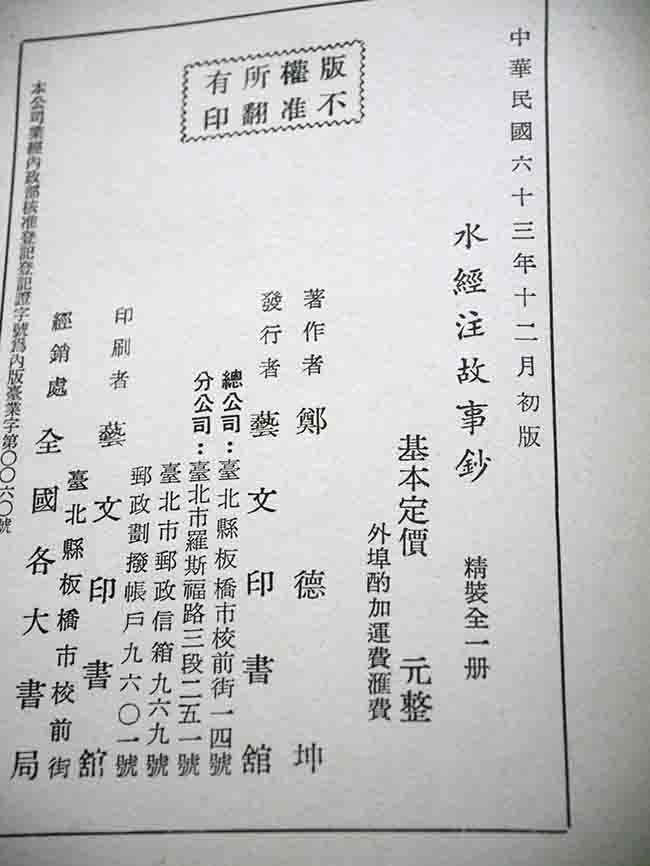 中華民國六十三年十二月初版
水經注故事鈔 精裝全一册
基本定價 元整
外埠酌加運費滙費
版權所有
不准翻印
著作者 鄭德坤
發行者 藝文印書館
總公司：臺北縣板橋市校前街一四號
分公司：臺北市羅斯福路三段二五一號
臺北市郵政信箱九六九號
郵政劃撥帳戶九六〇一號
印刷者 藝文印書館
臺北縣板橋市校前街
經銷處 全國各大書局
本公司業經內政部核准登記登記證字號爲內版臺業字第〇〇六〇號